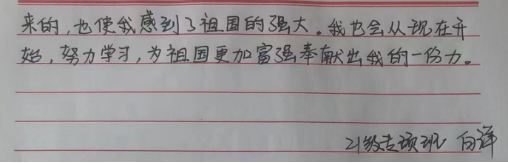 来的，也使我感到了祖国的强大。我也会从现在开
始，努力学习，为祖国更加富强奉献出我的一份力。
21级专项班 向洋